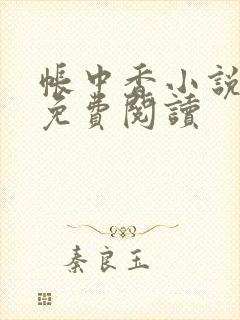 帳中香小說
免費閱讀
秦良玉